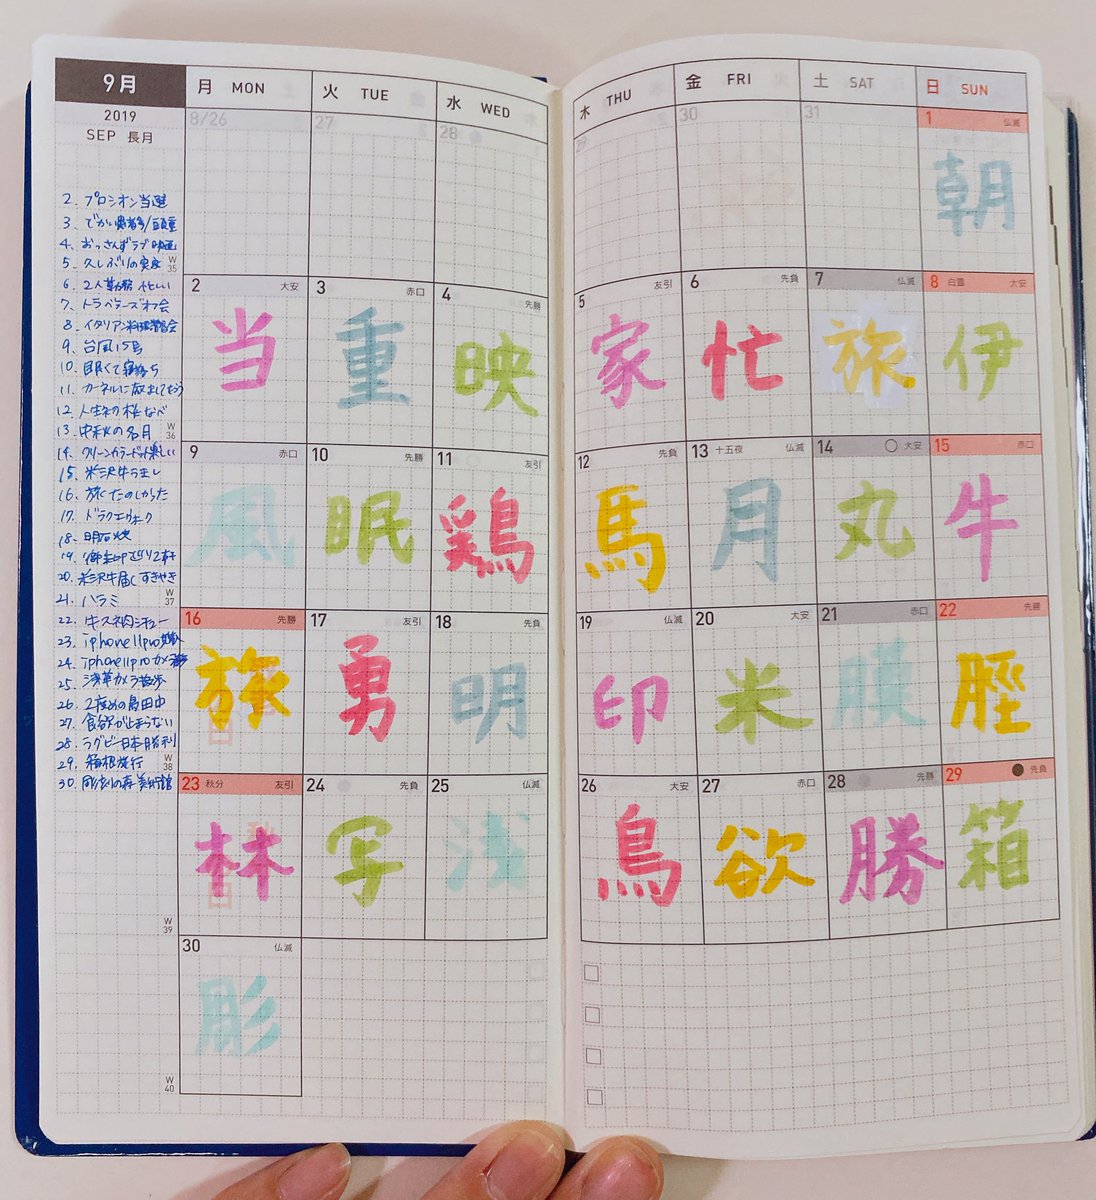 9月
2019
SEP 長月
月 MON
火 TUE
水 WED
木 THU
金 FRI
土 SAT
日 SUN
8/26
27
28
29
30
31
1 仏滅
朝
2. プロシオン当選
3. でかい患者多/頭重
4. おっさんずラブ映画
5. 久しぶりの実家
6. 2人勤務 忙しい
7. トラベラーズオフ会
8. イタリアン料理
9. 台風15号
10. 眠くて寝落ち
11. カーネルに
12. 人生初の桜なべ
13. 中秋の名月
14. グリーンカラードット楽しい
15. 米沢牛うまし
16. 旅
17. ドラクエウォーク
18. 明石焼
19. 御朱印めぐり2軒
20. 米沢牛届く すきやき
21. ハラミ
22. 牛スネ肉シチュー
23. iphone11pro
24. iphone11pro カメラ
25. 浅草カメラ散歩
26. 2度めの鳥田中
27. 食欲が止まらない
28. ラグビー日本勝利
29. 箱根旅行
30. 彫刻の森美術館
W 35
2 大安
当
3 赤口
重
4 先勝
映
5 友引
家
6 先負
忙
7 仏滅
旅
8 白露 大安
伊
W 36
9 赤口
風
10 先勝
眠
11 友引
鶏
12 先負
馬
13 十五夜 仏滅
月
14 大安
丸
15 赤口
牛
W 37
16 先勝
旅
17 友引
勇
18 先負
明
19 仏滅
印
20 大安
米
21 赤口
膜
22 先勝
脛
W 38
23 秋分 友引
林
24 先負
写
25 仏滅
浅
26 大安
鳥
27 赤口
欲
28 先勝
勝
29 先負
箱
W 39
30 仏滅
彫
W 40